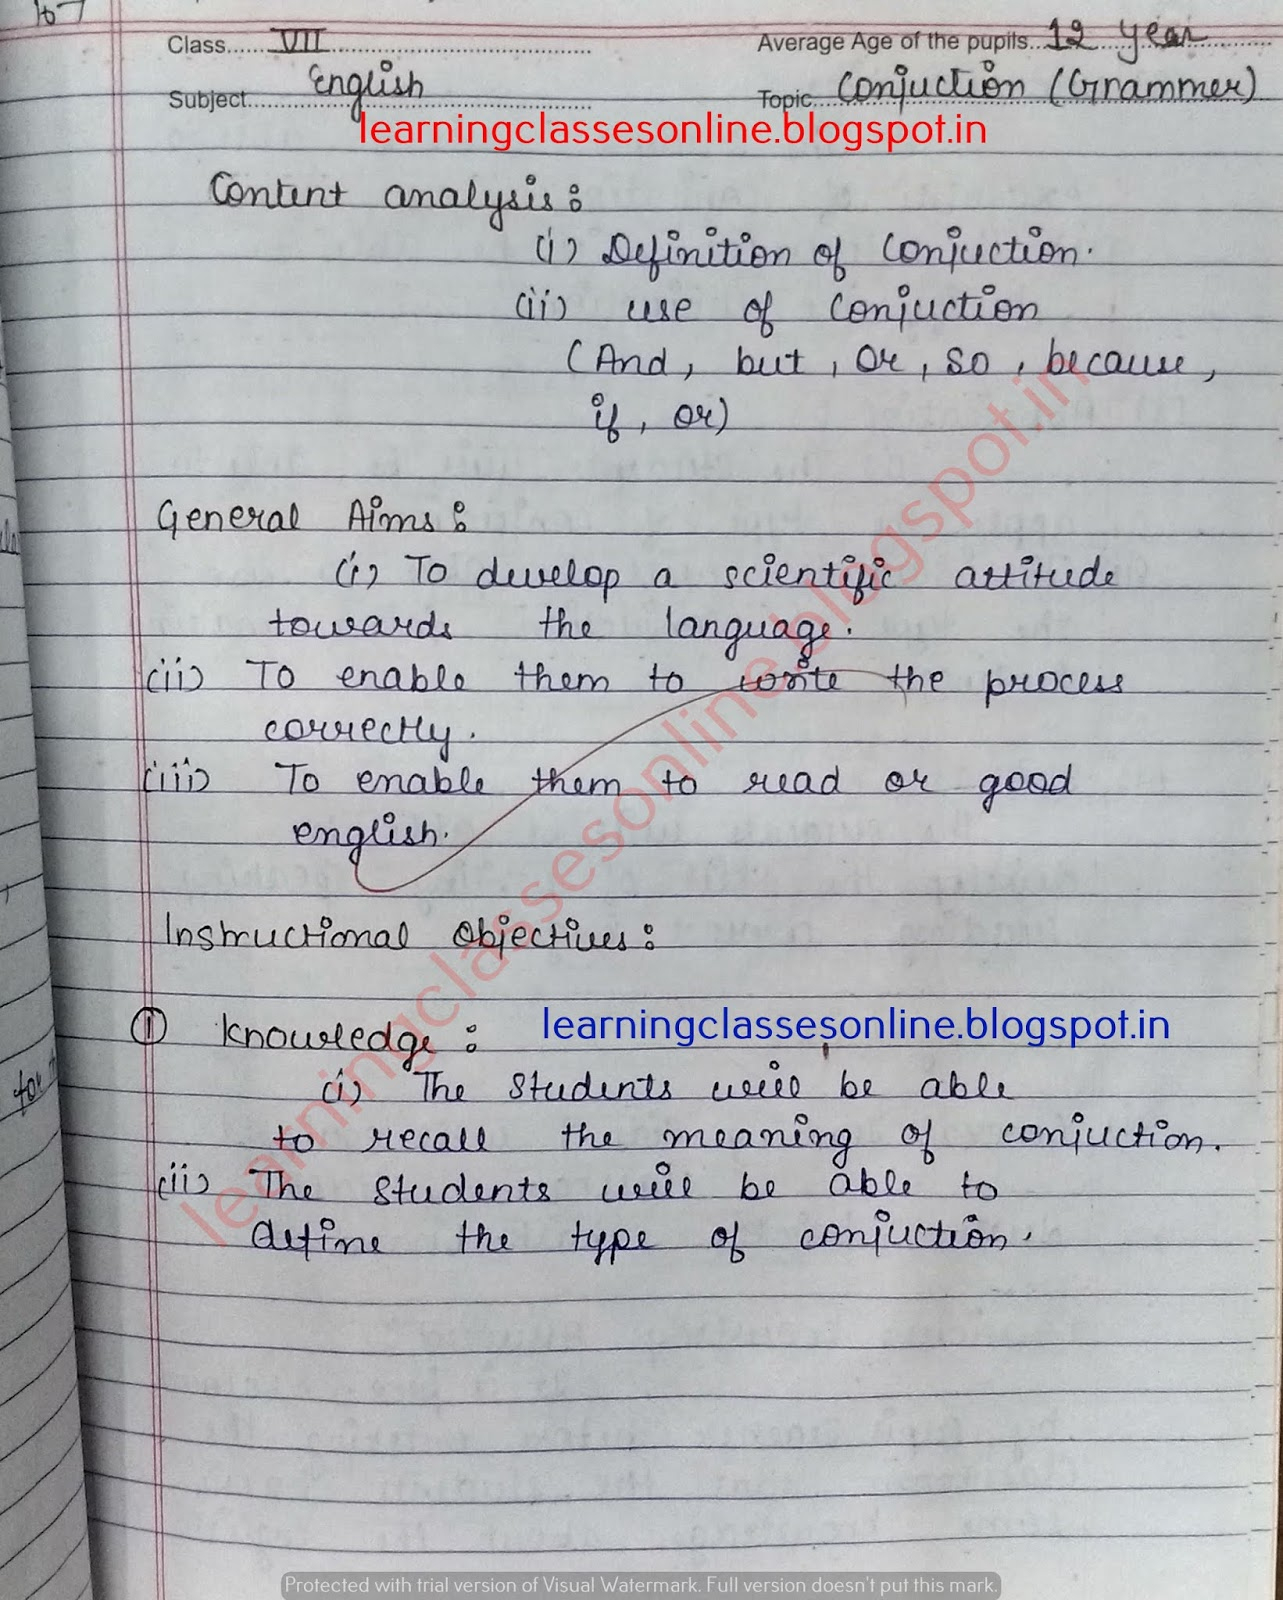 Class......VII
Average Age of the pupils...12 year
Subject......English
Topic....Conjuction (Grammer)
learningclassesonline.blogspot.in
Content analysis:
(i) Definition of Conjuction.
(ii) use of Conjuction
(And, but, or, so, because,
if, or)
General Aims:
(i) To develop a scientific attitude
towards the language.
(ii) To enable them to write the process
correctly.
(iii) To enable them to read or good
english.
Instructional Objectives:
① Knowledge:
learningclassesonline.blogspot.in
(i) The students will be able
to recall the meaning of conjuction.
(ii) The students will be able to
define the type of conjuction.
learningclassesonline.blogspot.in
Protected with trial version of Visual Watermark. Full version doesn't put this mark.